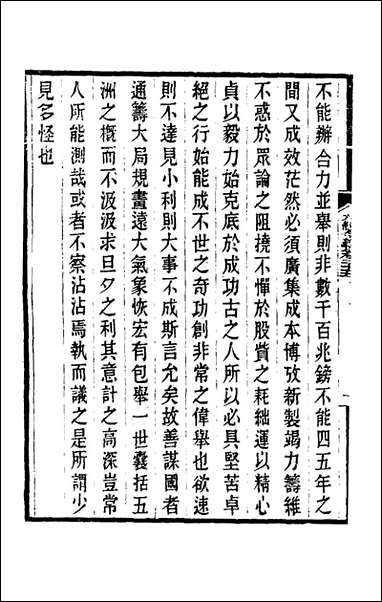 不能辦合力並舉則非數千百兆鎊不能四五年之
間又成效茫然必須廣集成本博攷新製竭力籌維
不惑於眾論之阻撓不憚於股貲之耗絀運以精心
貞以毅力始克底於成功古之人所以必具堅苦卓
絕之行始能成不世之奇功創非常之偉舉也欲速
則不達見小利則大事不成斯言允矣故善謀國者
通籌大局規畫遠大氣象恢宏有包舉一世囊括五
洲之概而不汲汲求旦夕之利其意計之高深豈常
人所能測哉或者不察沾沾焉執而議之是所謂少
見多怪也